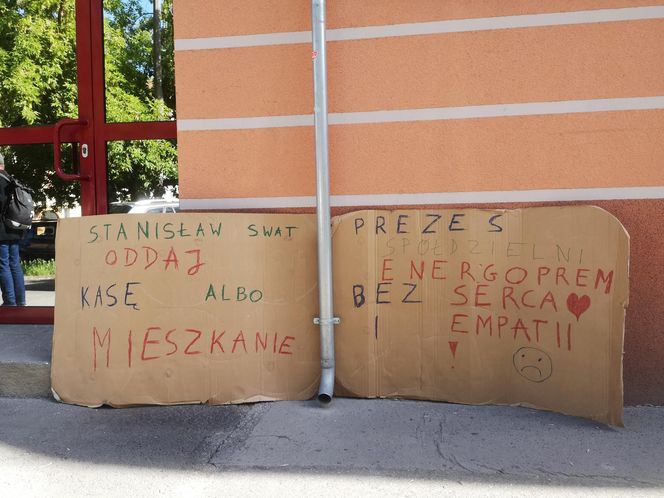 STANISŁAW SWAT
ODDAJ
KASĘ ALBO
MIESZKANIE
PREZES
SPÓŁDZIELNI
ENERGOPREM
BEZ SERCA
I EMPATII
!